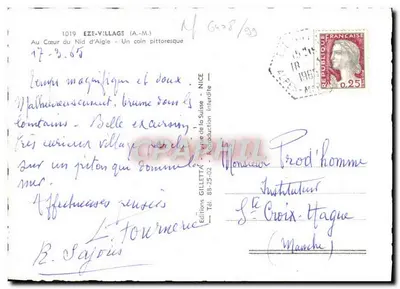 1019 EZE-VILLAGE (A.-M.)
Au Cœur du Nid d'Aigle - Un coin pittoresque
17-3.65
Temps magnifique et doux.
Malheureusement, brume dans les
lointains. Belle excursion.
Très curieux village perché
sur un piton qui domine la
mer.
Affectueuses pensées
L. Fournerie
R. Lajous
Editions GILLETTA - de la Suisse - NICE
Tél. 88-25-02 - Reproduction interdite
REPUBLIQUE FRANÇAISE
0,25
18
Monsieur Prod'homme
Instituteur
Ste Croix-Hague
(Manche)